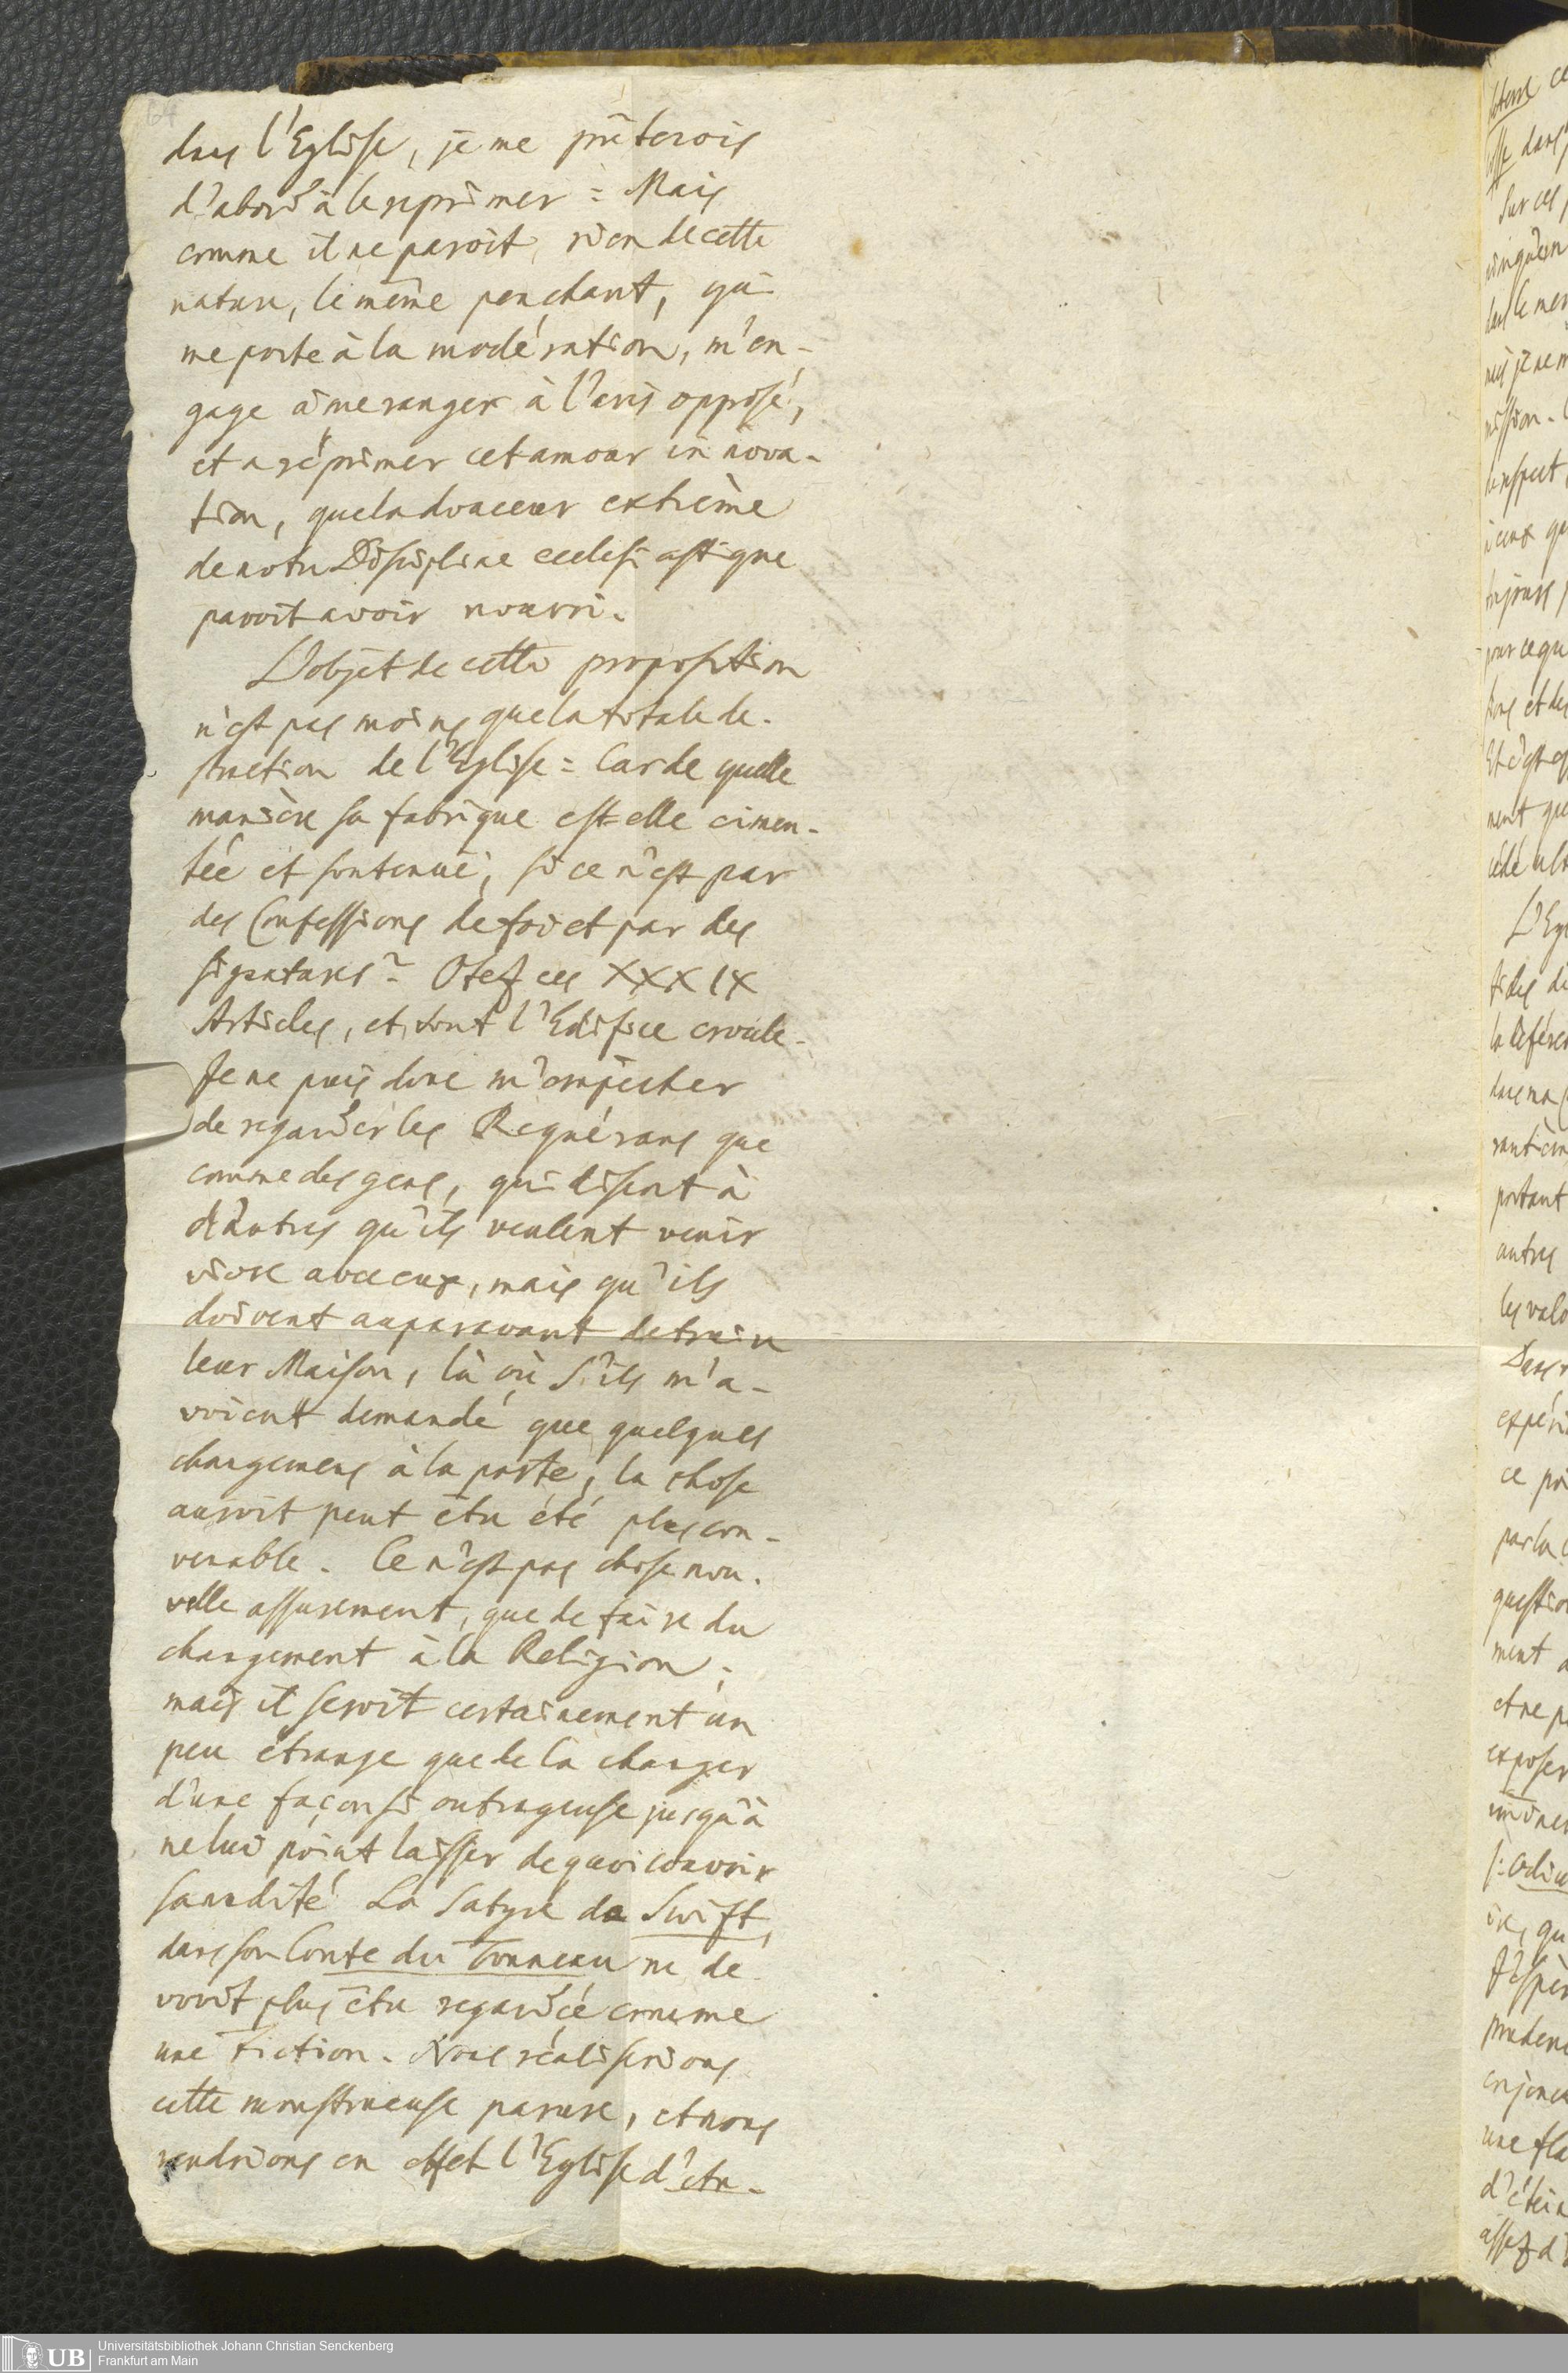 64
dans l'Eglise, je me prêterois
d'abord à le reprimer: Mais
comme il ne paroit, rien de cette
nature, le même penchant, qui
me porte à la modération, m'en-
gage à me ranger à l'avis opposé,
et a réprimer cet amour in nova-
tion, que la douceur extrème
de notre Discipline ecclesiastique
paroit avoir nourri.
L'objet de cette proposition
n'est pas moins que la totale de-
struction de l'Eglise: Car de quelle
manière sa fabrique est-elle cimen-
tée et soutenuë, si ce n'est par
des Confessions de foi et par des
signatures? Otez ces XXXIX
Articles, et tout l'Edifice croule.
Je ne puis donc m'empêcher
de regarder les Requérans que
comme des gens, qui disent à
d'autres qu'ils veulent venir
vivre avec eux, mais qu'ils
doivent auparavant detruire
leur Maison, là où s'ils m'a-
voient demandé que quelques
changemens à la porte, la chose
auroit peut être été plus con-
venable. Ce n'est pas chose nou-
velle assurement, que de faire du
changement à la Religion;
mais il seroit certainement un
peu étrange que de la changer
d'une façon si outrageuse jusqu'à
ne lui point laisser de quoi couvrir
sa nudité. La Satyre de Swift,
dans son Conte du Tonneau ne de-
vroit plus être regardée comme
une Fiction. Nous réaliserions
cette monstrueuse parure, et nous
rendrions en effet l'Eglise d'etre-
Universitätsbibliothek Johann Christian Senckenberg
Frankfurt am Main
UB